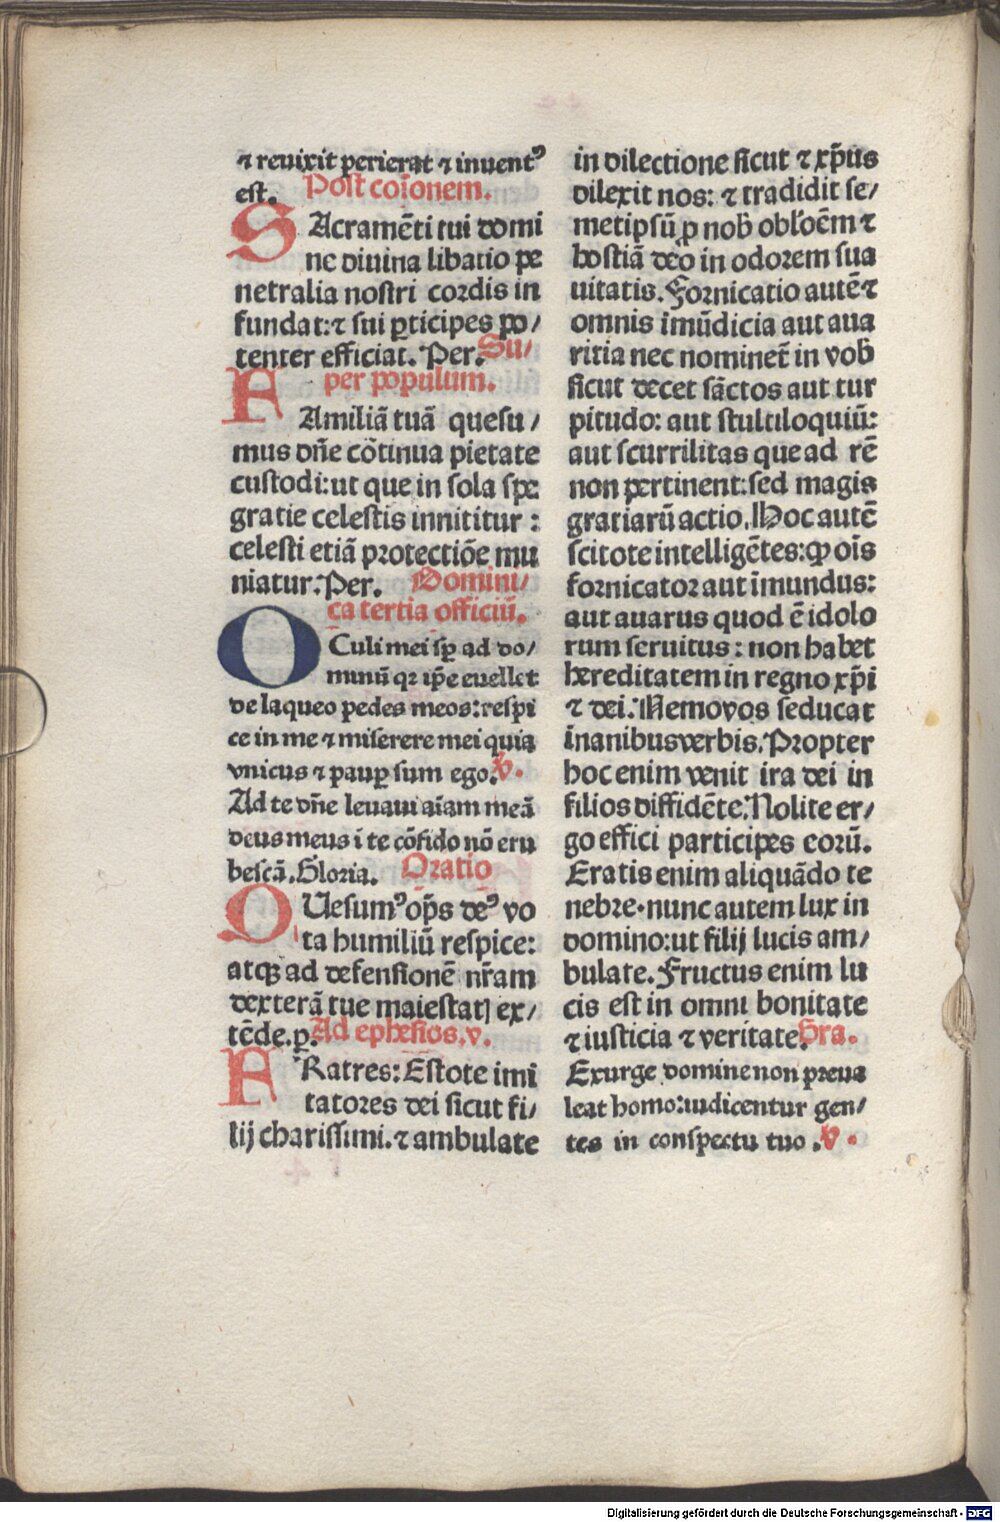 ⁊ reuixit perierat ⁊ inuentꝰ
est. Post cōionem.
SAcramēti tui domi
ne diuina libatio pe
netralia nostri cordis in
fundat: ⁊ sui ꝑticipes po/
tenter efficiat. Per. Su/
per populum.
FAmiliā tuā quesu/
mus dn̄e cōtinua pietate
custodi: ut que in sola spe
gratie celestis innititur:
celesti etiā protectiōe mu
niatur. Per. Domini/
ca tertia officiū.
OCuli mei sꝑ ad do/
minū qꝛ ip̄e euellet
de laqueo pedes meos: respi
ce in me ⁊ miserere mei quia
vnicus ⁊ pauꝑ sum ego. ℣.
Ad te dn̄e leuaui aīam meā
deus meus ī te cōfido nō eru
bescā. Gloria. Oratio
QUesumꝰ op̄s deꝰ vo
ta humiliū respice:
atqꝫ ad defensionē nr̄am
dexterā tue maiestatꝭ ex/
tēde. ꝑ. Ad ephesios. v.
FRatres: Estote imi
tatores dei sicut fi/
lij charissimi. ⁊ ambulate
in dilectione sicut ⁊ xp̄us
dilexit nos: ⁊ tradidit se/
metipsū ꝓ nob̄ obłoēm ⁊
hostiā deo in odorem sua
uitatis. Fornicatio autē ⁊
omnis īmūdicia aut aua
ritia nec nominet̄ in vob̄
sicut decet sāctos aut tur
pitudo: aut stultiloquiū:
aut scurrilitas que ad rē
non pertinent: sed magis
gratiarū actio. Hoc autē
scitote intelligētes: ꝙ oīs
fornicator aut īmundus:
aut auarus quod ē idolo
rum seruitus: non habet
hereditatem in regno xp̄i
⁊ dei. Nemo vos seducat
īnanibus verbis. Propter
hoc enim venit ira dei in
filios diffidēte. Nolite er/
go effici participes eorū.
Eratis enim aliquādo te
nebre. nunc autem lux in
domino: ut filij lucis am/
bulate. Fructus enim lu
cis est in omni bonitate
⁊ iusticia ⁊ veritate. Gra.
Exurge domine non preua
leat homo: iudicentur gen/
tes in conspectu tuo. ℣.
Digitalisierung gefördert durch die Deutsche Forschungsgemeinschaft - DFG